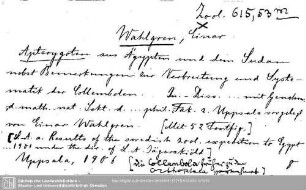 Zool. 615,53 m
Wahlgren, Einar
Apterygoten aus Ägypten und dem Sudan
nebst Bemerkungen zur Verbreitung und Syste-
matik der Collembolen. In. Diss. mit Genehm.
d. math. nat. Sekt. d. phil. Fak. z. Uppsala vorgelegt
von Einar Wahlgren [Mit 52 Textfig.]
[S. a. Results of the swedish zool. expedition to Egypt
1901 under the dir. of L. A. Jägerskiöld]
Uppsala, 1906